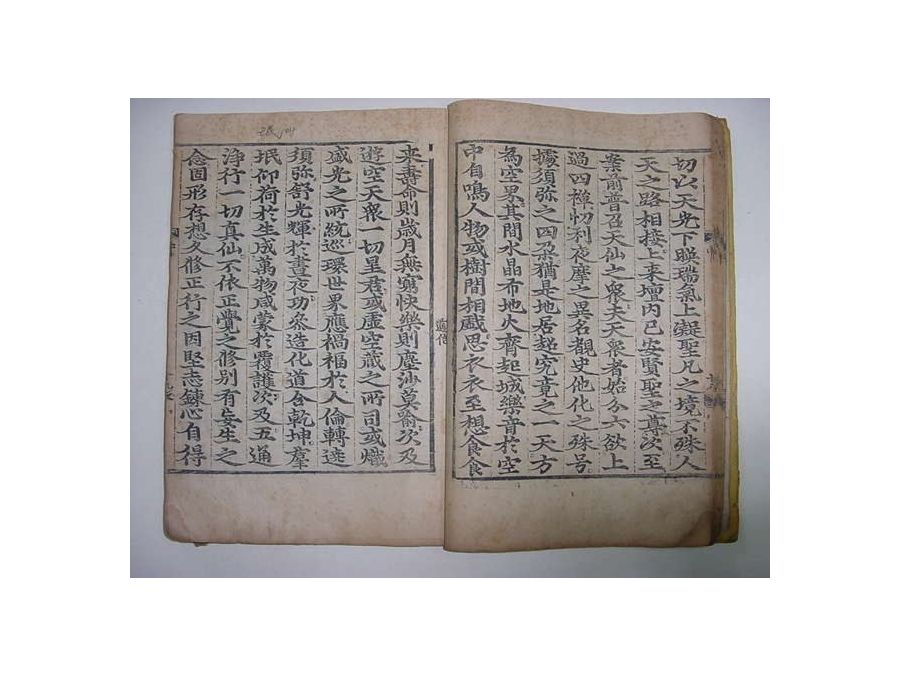 切以天光下暎瑞氣上凝聖凡之境不殊人
天之路相接上来壇内已安賢聖之尊次至
案前普召天仙之衆夫天衆者始分六欲上
過四禅忉利夜摩之異名覩史他化之殊号
據須弥之四朶猶是地居超究竟之一天方
為空界其間水晶布地火齊起城樂音於空
中自鳴人物或樹間相戯思衣衣至想食食
来壽命則歳月無窮快樂則塵沙莫喻次及
遊空天衆一切星君或虚空蔵之所司或熾
盛光之所統巡環世界應禍福於人倫轉遶
須弥舒光輝於晝夜功叅造化道合乾坤羣
氓仰荷於生成萬物咸蒙於覆護次及五通
浄行一切真仙不依正覺之修別有妄生之
念固形存想久修正行之因堅志錬心自得